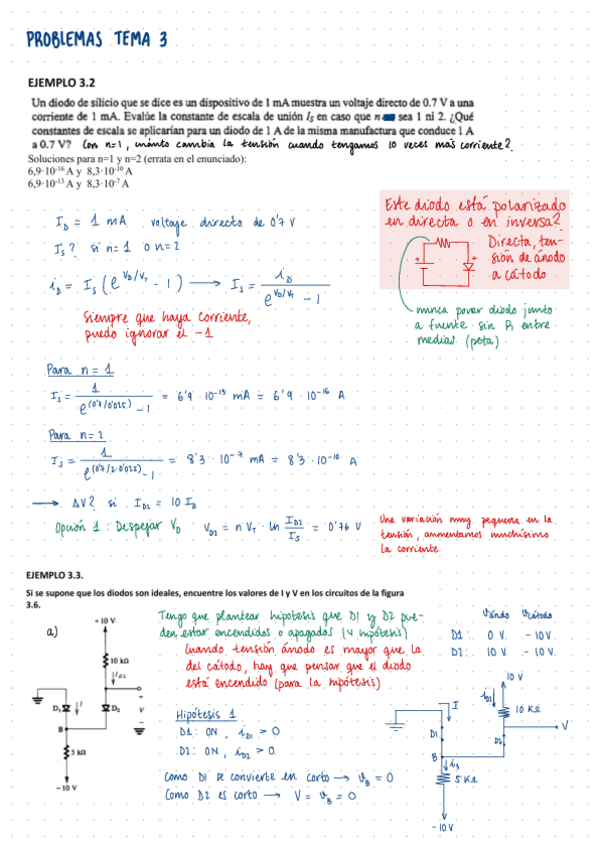 PROBLEMAS TEMA 3
EJEMPLO 3.2
Un diodo de silicio que se dice es un dispositivo de 1 mA muestra un voltaje directo de 0.7 V a una
corriente de 1 mA. Evalúe la constante de escala de unión Is en caso que n sea 1 ni 2. ¿Qué
constantes de escala se aplicarían para un diodo de 1 A de la misma manufactura que conduce 1 A
a 0.7 V? Con n=1, cuánto cambia la tensión cuando tengamos 10 veces más corriente?
Soluciones para n=1 y n=2 (errata en el enunciado):
6,9·10⁻¹⁶ A y 8,3·10⁻¹⁰ A
6,9·10⁻¹³ A y 8,3·10⁻⁷ A
Este diodo está polarizado
en directa o en inversa?
Directa, ten-
sión de ánodo
a cátodo
+
+
-
-
nunca poner diodo junto
a fuente sin R entre
medias (peta)
I_D = 1 mA voltaje directo de 0'7 V
I_S? si n=1 o n=2
i_D = I_S (e^(V_D/V_T) - 1) → I_S = i_D / (e^(V_D/V_T) - 1)
Siempre que haya corriente,
puedo ignorar el -1
Para n = 1
I_S = 1 / (e^(0'7/0'025) - 1) = 6'9 · 10⁻¹³ mA = 6'9 · 10⁻¹⁶ A
Para n=2
I_S = 1 / (e^(0'7/2·0'025) - 1) = 8'3 · 10⁻⁷ mA = 8'3 · 10⁻¹⁰ A
→ ΔV? si I_D2 = 10 I_D
Opción 1: Despejar V_D V_D2 = n V_T · ln I_D2/I_S = 0'76 V
Una variación muy pequeña en la
tensión, aumentamos muchísimo
la corriente.
EJEMPLO 3.3.
Si se supone que los diodos son ideales, encuentre los valores de I y V en los circuitos de la figura
3.6.
a)
+10 V
10 kΩ
I_D2
D₁
I
D₂
+
V
-
B
5 kΩ
-10 V
Tengo que plantear hipótesis que D1 y D2 pue-
den estar encendidos o apagados (4 hipótesis)
Cuando tensión ánodo es mayor que la
del cátodo, hay que pensar que el diodo
está encendido (para la hipótesis)
Hipótesis 1
D1: ON, i_D1 > 0
D2: ON, i_D2 > 0
Como D1 se convierte en corto → v_B = 0
Como D2 es corto → V = v_B = 0
Vánodo Vcátodo
D1: 0 V -10V
D2: 10 V -10V.
10 V
i_D2
10 KΩ
I
V
D1
D2
B
i_3
5 KΩ
-10 V